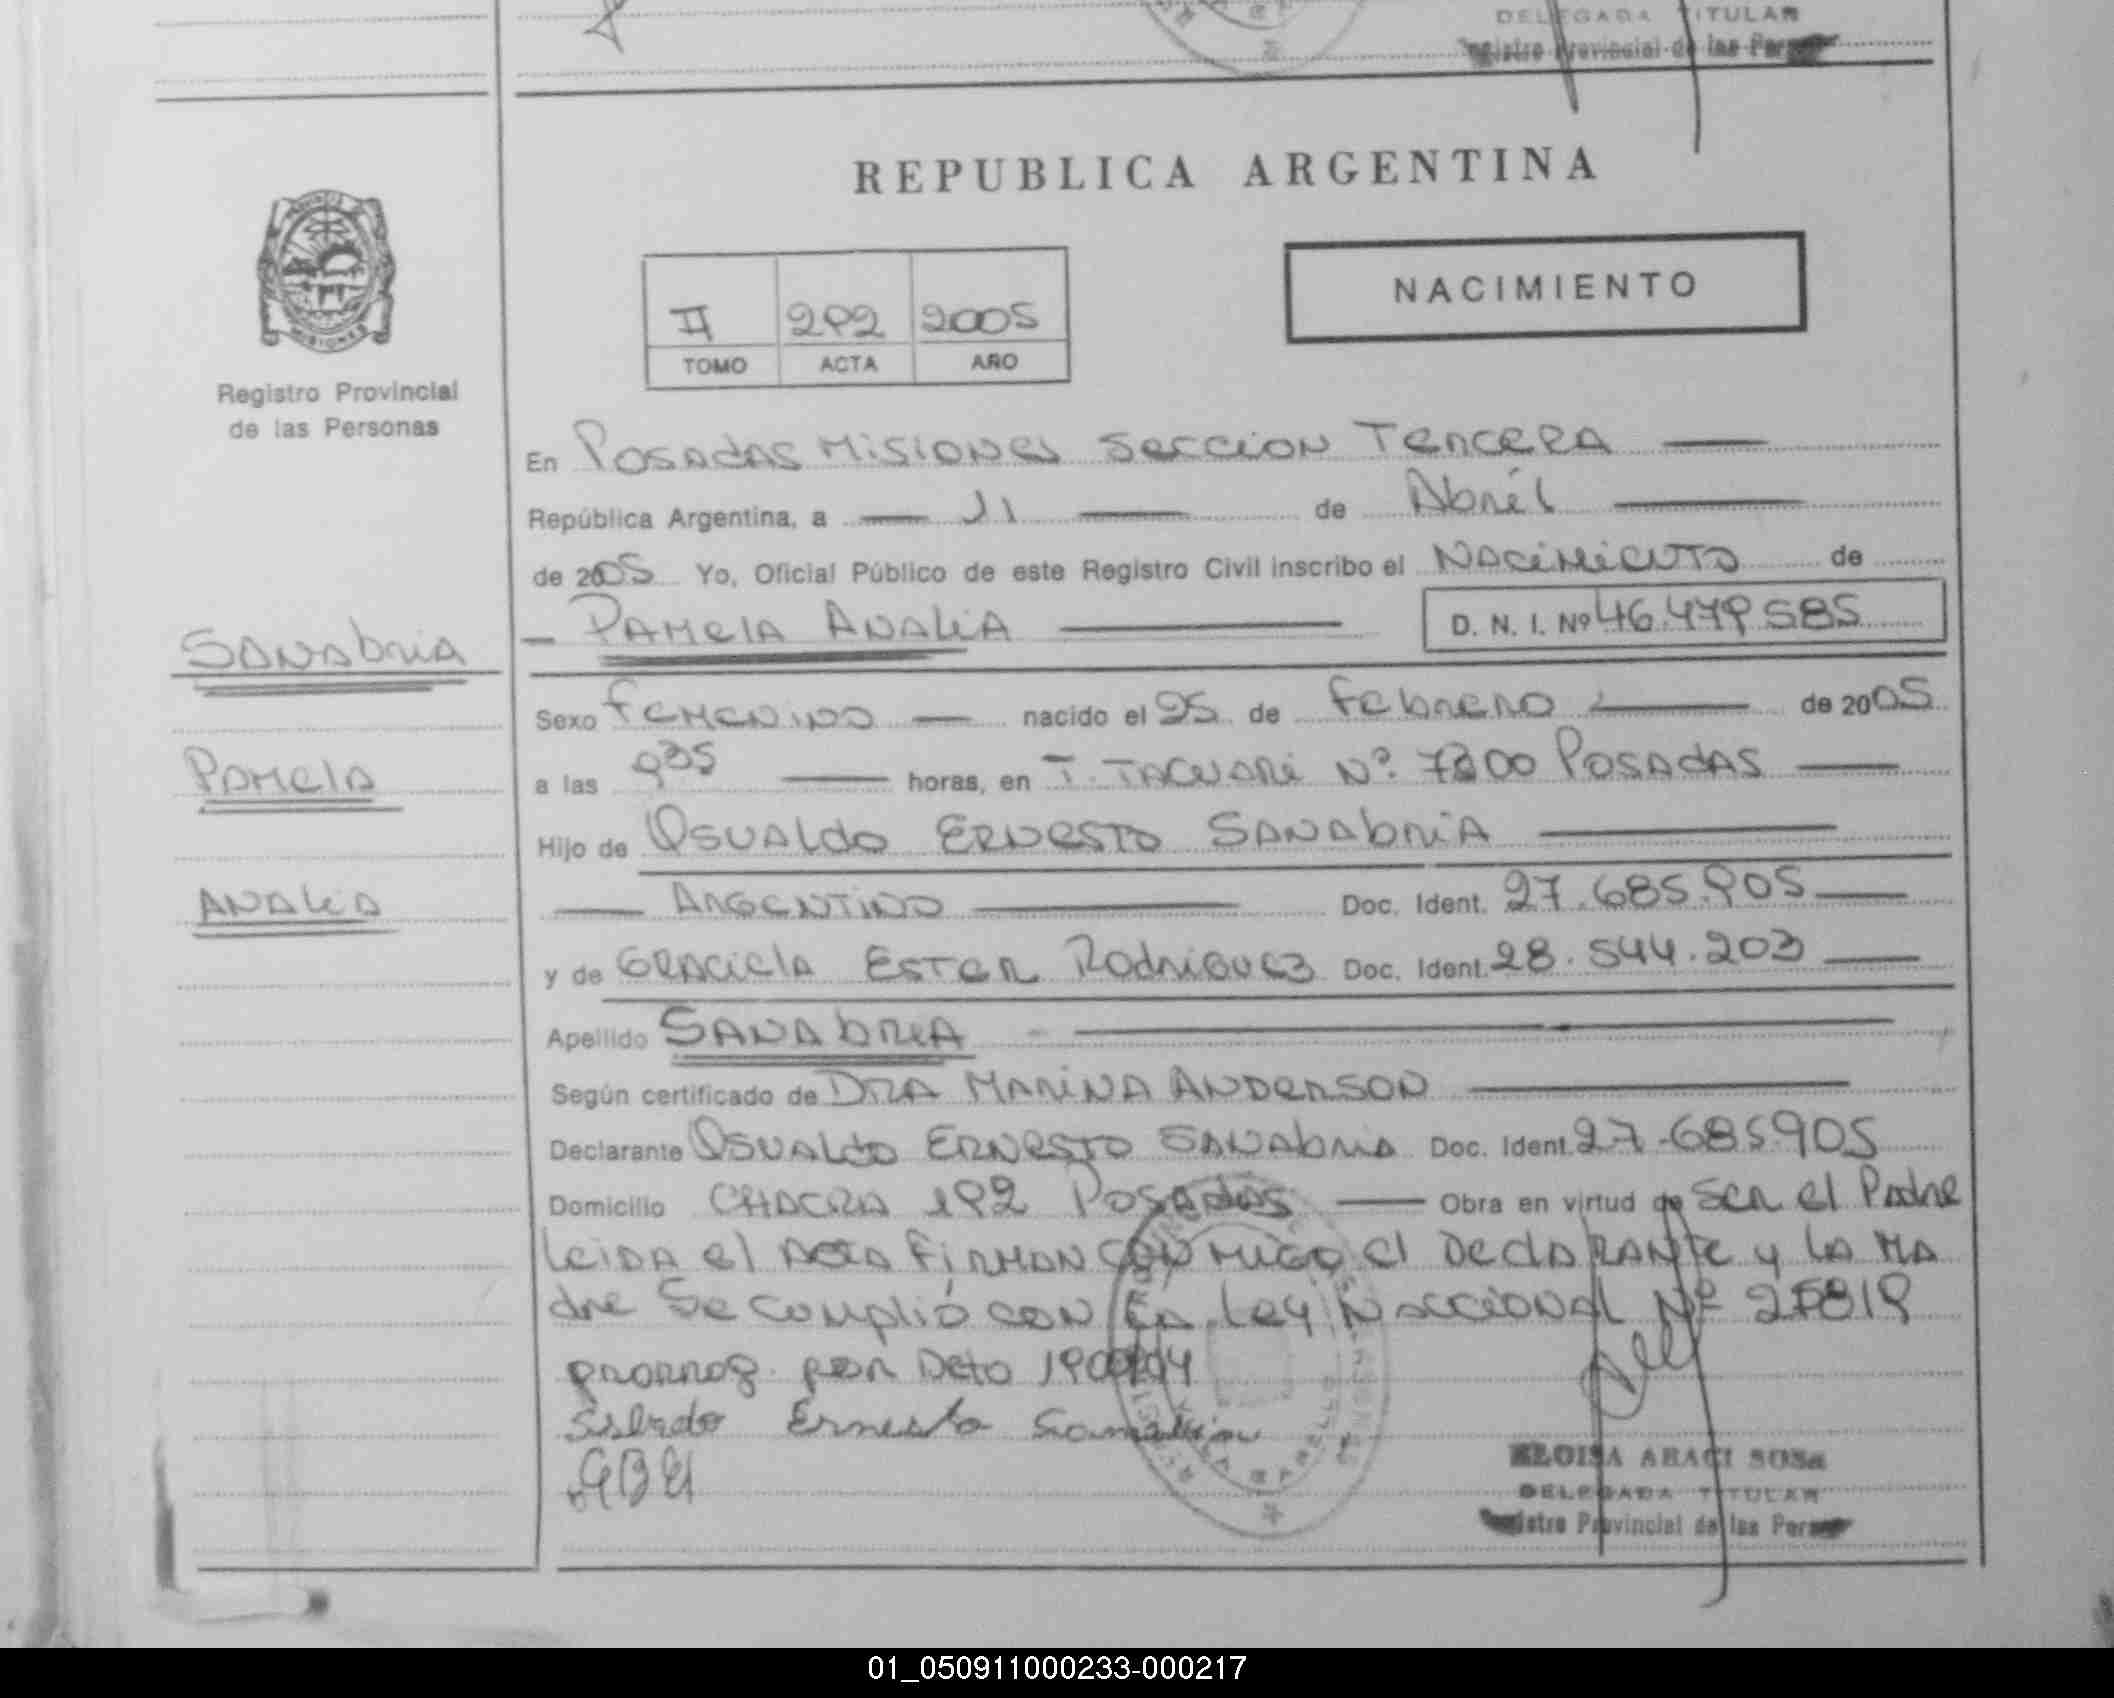 DELEGADA TITULAR
Registro Provincial de las Personas
REPUBLICA ARGENTINA
NACIMIENTO
II 292 2005
TOMO ACTA AÑO
Registro Provincial
de las Personas
En Posadas Misiones Sección Tercera
República Argentina, a 11 de Abril
de 2005 Yo, Oficial Público de este Registro Civil inscribo el Nacimiento de
Sanabria
Pamela Analia D. N. I. Nº 46.479.585
Sexo Femenino nacido el 25 de Febrero de 2005
Pamela
a las 9 35 horas, en T. Tacuari Nº 7300 Posadas
Hijo de Osvaldo Ernesto Sanabria
Analia
Argentino Doc. Ident. 27.685.905
y de Graciela Ester Rodriguez Doc. Ident. 28.544.203
Apellido Sanabria
Según certificado de Dra Marina Anderson
Declarante Osvaldo Ernesto Sanabria Doc. Ident. 27.685.905
Domicilio Chacra 192 Posadas Obra en virtud de ser el Padre
leida el Acta Firman conmigo el Declarante y la Ma
dre Se cumplió con la Ley Naccional Nº 25819
prorrog. por Dcto
Ernesto Sanabria
ELOISA ARACI SOSA
DELEGADA TITULAR
Registro Provincial de las Personas
01_050911000233-000217